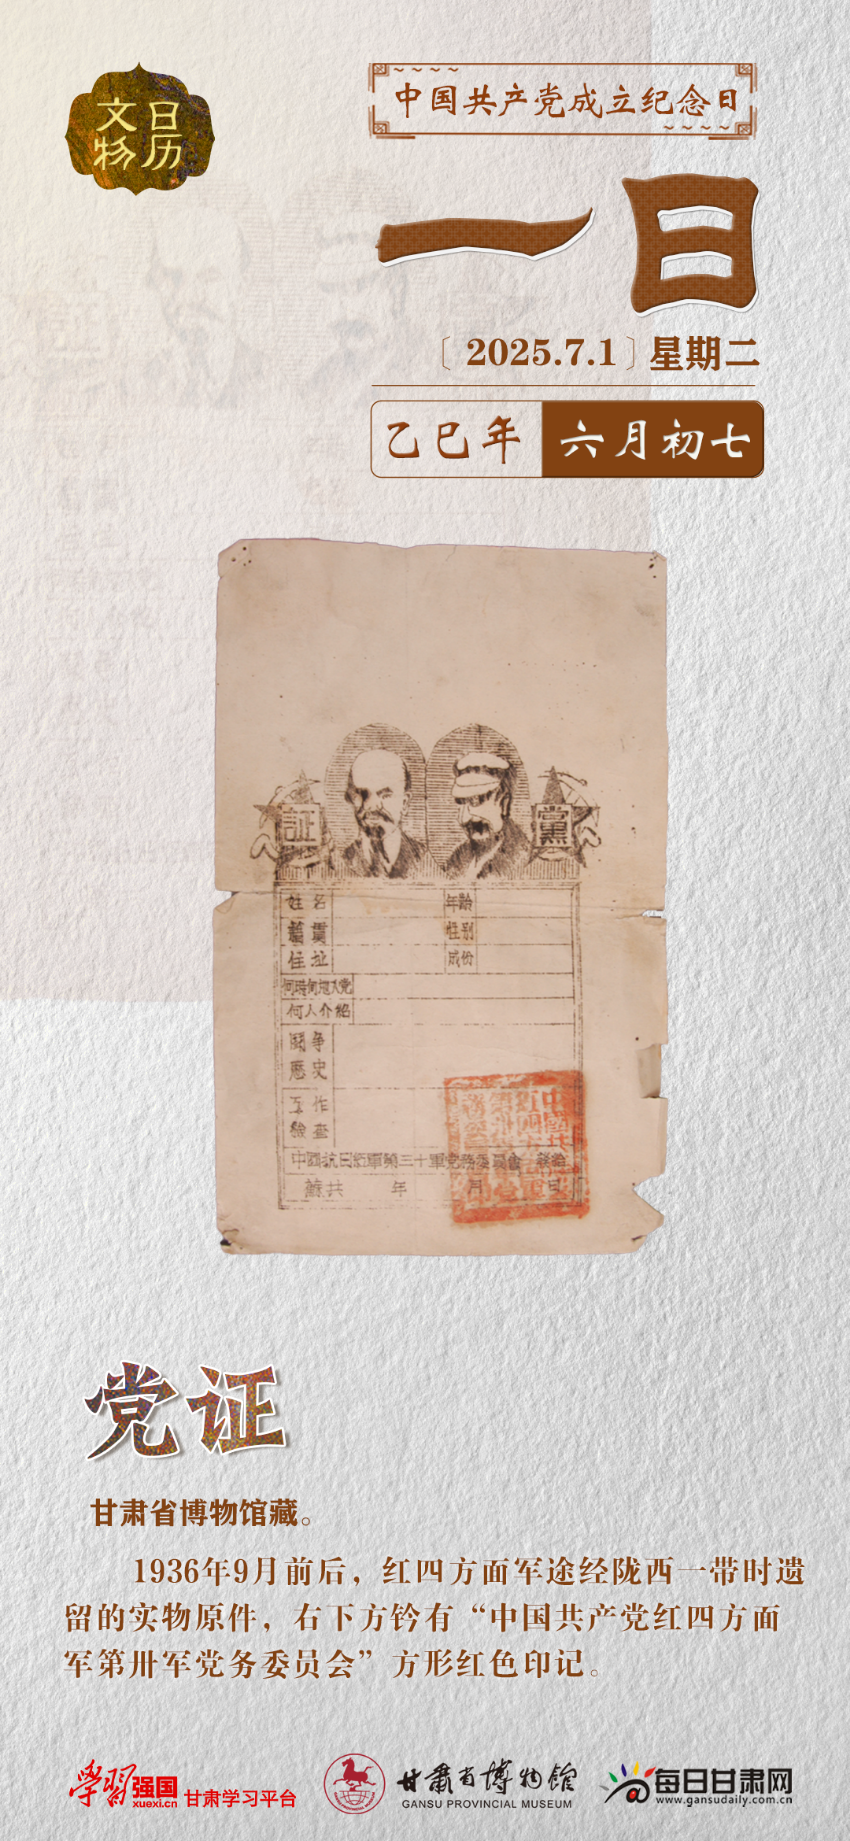 文物
日历
中国共产党成立纪念日
一日
〔 2025.7.1 〕星期二
乙巳年 六月初七
証 黨
姓名 年龄
籍貫 性别
住址 成份
何時何地入党
何人介紹
鬭争
歷史
工作
檢查
中國抗日紅軍第三十軍党務委員會
蘇共 年 月 日
党证
甘肃省博物馆藏。
1936年9月前后，红四方面军途经陇西一带时遗
留的实物原件，右下方钤有“中国共产党红四方面
军第卅军党务委员会”方形红色印记。
学习强国 xuexi.cn 甘肃学习平台
甘肃省博物馆
GANSU PROVINCIAL MUSEUM
每日甘肃网
www.gansudaily.com.cn